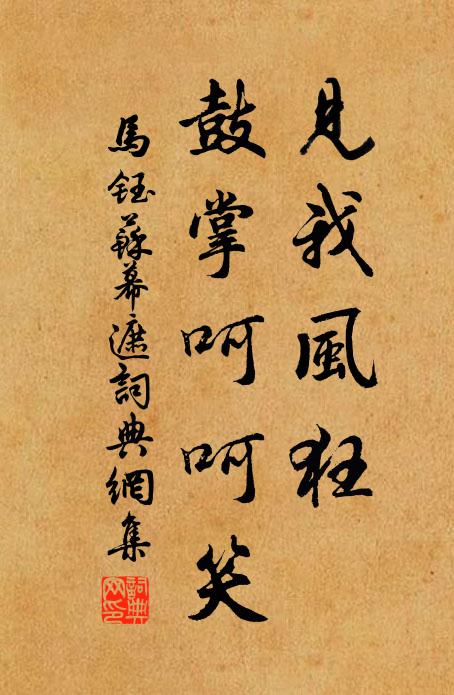 見我風狂
鼓掌呵呵笑
馬鈺蘇幕遮詞典網集
詞典網印